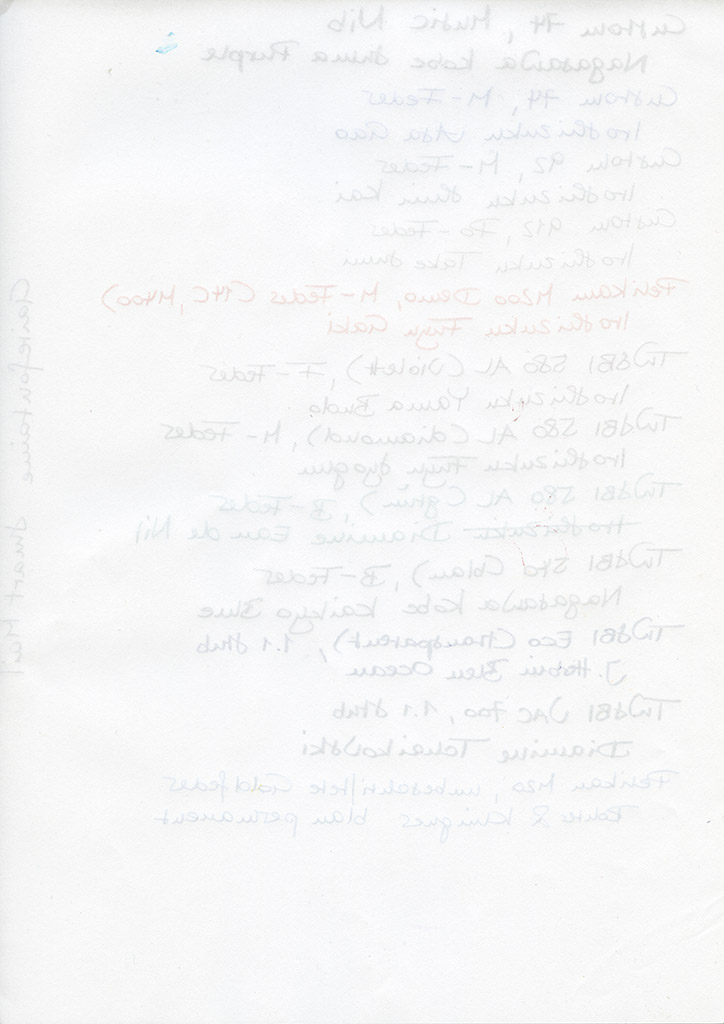 Custom 74, Music Nib
Nagasawa Kobe Suma Purple
Custom 74, M-Feder
Iroshizuku Asa Gao
Custom 92, M-Feder
Iroshizuku Shin Kai
Custom 912, Po-Feder
Iroshizuku Take Sumi
Pelikan M200 Demo, M-Feder (14C, M400)
Iroshizuku Fuyu Gaki
TWSBI 580 AL (Violett), F-Feder
Iroshizuku Yama Budo
TWSBI 580 AL (diamond), M-Feder
Iroshizuku Fuyu Syogun
TWSBI 580 AL (grün), B-Feder
Iroshizuku Diamine Eau de Nil
TWSBI 540 (blau), B-Feder
Nagasawa Kobe Kaikyo Blue
TWSBI Eco (transparent), 1.1 Stub
J. Herbin Bleu Ocean
TWSBI VAC 700, 1.1 Stub
Diamine Tchaikowski
Pelikan M20, unbeschriftete Goldfeder
Rohrer & Klingner blau permanent
Clairefontaine Smart